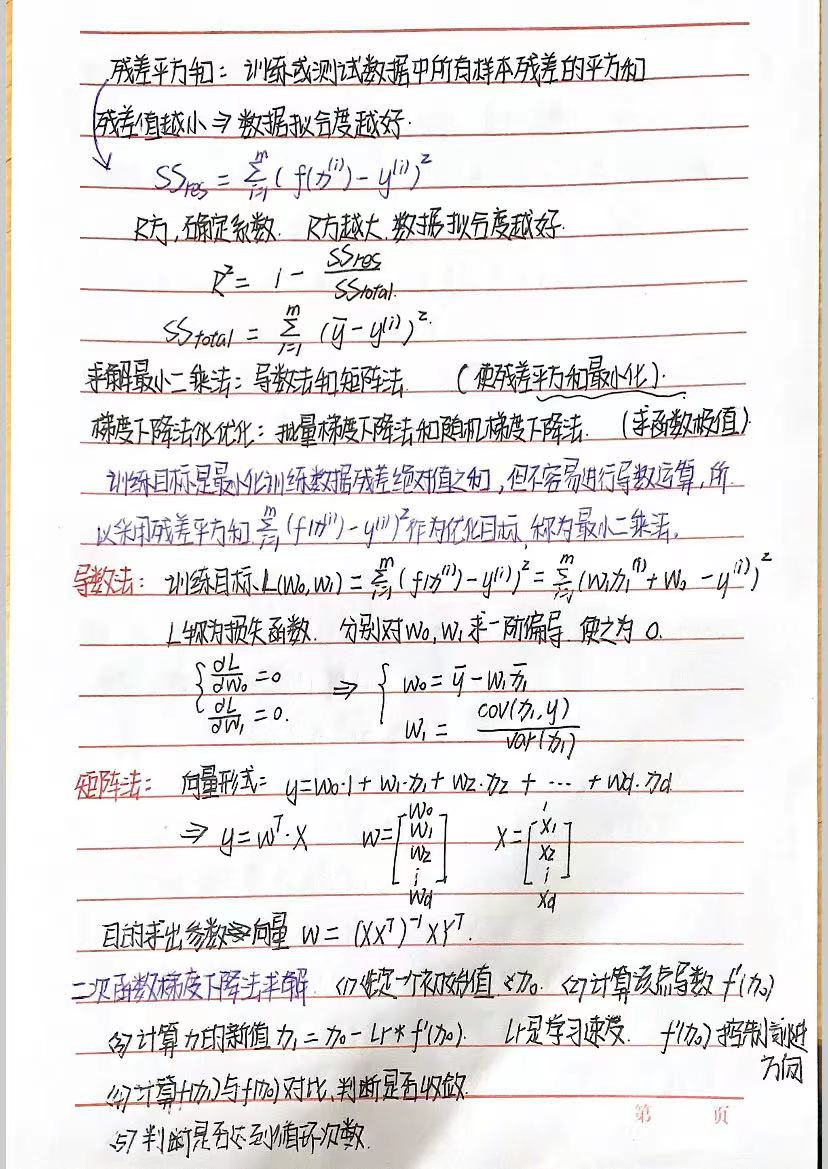 残差平方和：训练或测试数据中所有样本残差的平方和
残差值越小⇒数据拟合度越好.
SSres = Σ(i=1→m) (f(x⁽ⁱ⁾) - y⁽ⁱ⁾)²
R方,确定系数. R方越大,数据拟合度越好.
R² = 1 - SSres / SStotal.
SStotal = Σ(i=1→m) (ȳ - y⁽ⁱ⁾)².
求解最小二乘法：导数法和矩阵法. (使残差平方和最小化).
梯度下降法优化：批量梯度下降法和随机梯度下降法. (求函数极值)
训练目标是最小化训练数据残差绝对值之和,但不容易进行导数运算,所
以采用残差平方和 Σ(i=1→m) (f(x⁽ⁱ⁾) - y⁽ⁱ⁾)² 作为优化目标,称为最小二乘法.
导数法：训练目标L(w₀,w₁) = Σ(i=1→m) (f(x⁽ⁱ⁾) - y⁽ⁱ⁾)² = Σ(i=1→m) (w₁x₁⁽ⁱ⁾ + w₀ - y⁽ⁱ⁾)²
L称为损失函数. 分别对w₀,w₁求一阶偏导 使之为0.
{ ∂L/∂w₀ = 0 ⇒ { w₀ = ȳ - w₁x̄₁
∂L/∂w₁ = 0. w₁ = cov(x₁,y) / var(x₁)
矩阵法：向量形式：y = w₀·1 + w₁·x₁ + w₂·x₂ + ⋯ + wd·xd
⇒ y = wᵀ·X w = [w₀ w₁ w₂ ⋮ wd] X = [1 x₁ x₂ ⋮ xd]
目的求出参数向量 w = (XXᵀ)⁻¹XYᵀ.
二次函数梯度下降法求解. <1>给定一个初始值 x₀. <2>计算该点导数 f'(x₀)
<3>计算x的新值 x₁ = x₀ - Lr * f'(x₀). Lr是学习速度. f'(x₀)控制前进
方向
<4>计算f(x₁)与f(x₀)对比,判断是否收敛.
<5>判断是否达到循环次数.
第 页